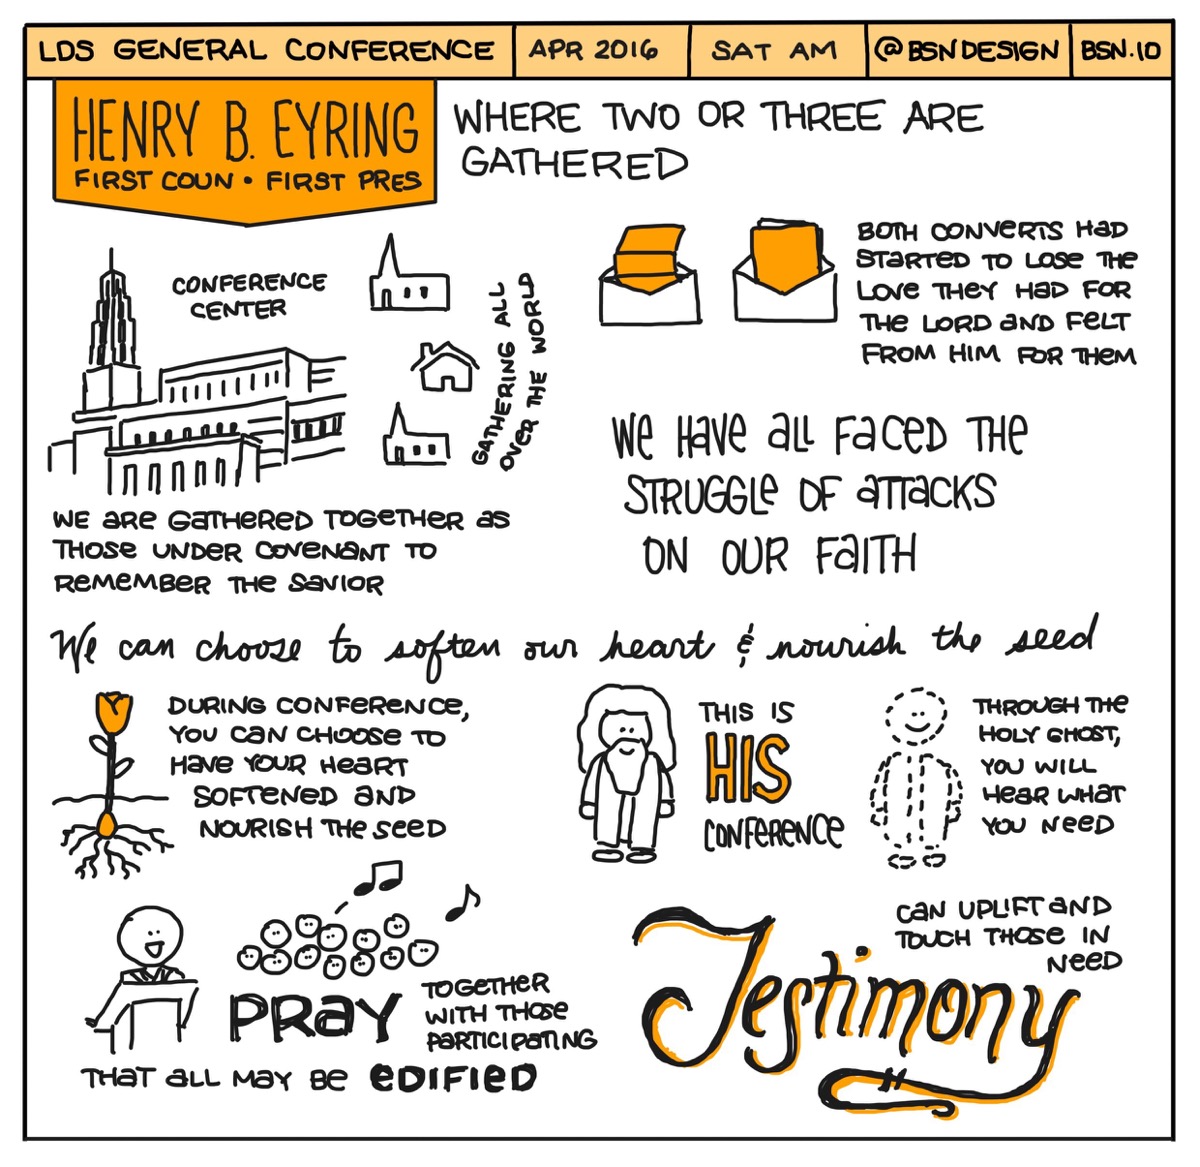 LDS GENERAL CONFERENCE
APR 2016
SAT AM
@BSNDESIGN
BSN.IO
HENRY B. EYRING
FIRST COUN • FIRST PRES
WHERE TWO OR THREE ARE
GATHERED
CONFERENCE
CENTER
GATHERING ALL
OVER THE WORLD
WE ARE GATHERED TOGETHER AS
THOSE UNDER COVENANT TO
REMEMBER THE SAVIOR
BOTH CONVERTS HAD
STARTED TO LOSE THE
LOVE THEY HAD FOR
THE LORD AND FELT
FROM HIM FOR THEM
WE HAVE ALL FACED THE
STRUGGLE OF ATTACKS
ON OUR FAITH
We can choose to soften our heart & nourish the seed
DURING CONFERENCE,
YOU CAN CHOOSE TO
HAVE YOUR HEART
SOFTENED AND
NOURISH THE SEED
THIS IS
HIS
CONFERENCE
THROUGH THE
HOLY GHOST,
YOU WILL
HEAR WHAT
YOU NEED
PRAY
TOGETHER
WITH THOSE
PARTICIPATING
THAT ALL MAY BE EDIFIED
Testimony
CAN UPLIFT AND
TOUCH THOSE IN
NEED